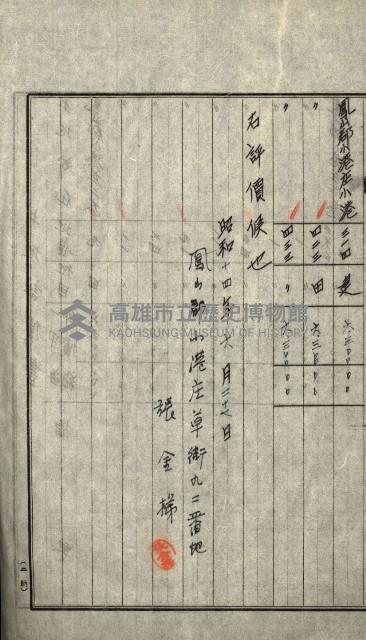 鳳山郡小港庄小港 三一四 建 六三〇〇〇
〃 四二三 田 六三〇〇〇
〃 四三三 〃
右評價候也
昭和十四年六月二十七日
鳳山郡小港庄草衙九二番地
張金梯
高雄市立歷史博物館
KAOHSIUNG MUSEUM OF HISTORY